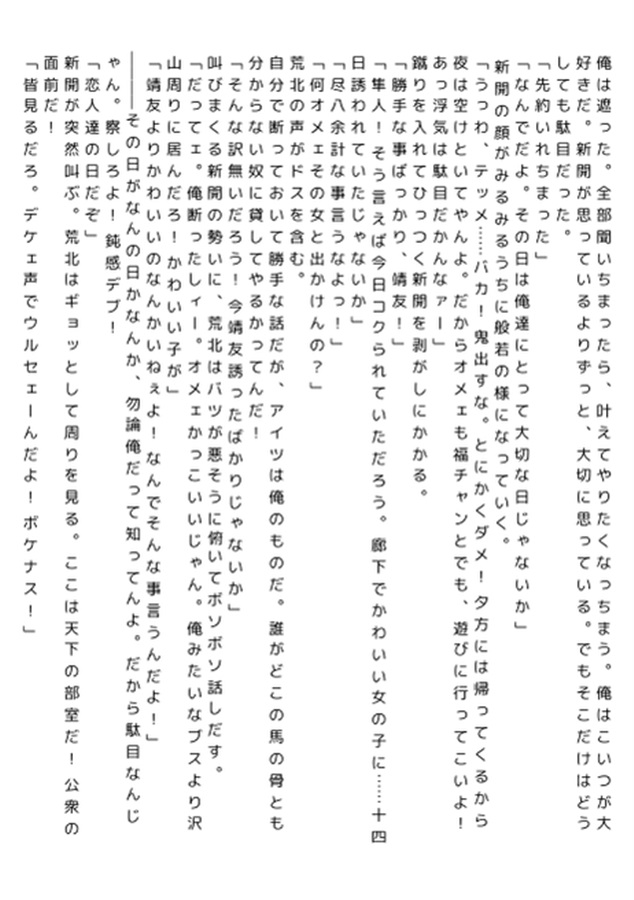 俺は遮った。全部聞いちまったら、叶えてやりたくなっちまう。俺はこいつが大
好きだ。新開が思っているよりずっと、大切に思っている。でもそこだけはどう
しても駄目だった。
「先約いれちまった」
「なんでだよ。その日は俺達にとって大切な日じゃないか」
新開の顔がみるみるうちに般若の様になっていく。
「うっわ、テッメ……バカ！鬼出すな。とにかくダメ！夕方には帰ってくるから
夜は空けといてやんよ。だからオメェも福チャンとでも、遊びに行ってこいよ！
あっ浮気は駄目だかんなァー」
蹴りを入れてひっつく新開を剥がしにかかる。
「勝手な事ばっかり、靖友！」
「隼人！そう言えば今日コクられていただろう。廊下でかわいい女の子に……十四
日誘われていたじゃないか」
「尽八余計な事言うなよっ！」
「何オメェその女と出かけんの？」
荒北の声がドスを含む。
自分で断っておいて勝手な話だが、アイツは俺のものだ。誰がどこの馬の骨とも
分からない奴に貸してやるかってんだ！
「そんな訳無いだろう！今靖友誘ったばかりじゃないか」
叫びまくる新開の勢いに、荒北はバツが悪そうに俯いてボソボソ話しだす。
「だってェ。俺断ったしィー。オメェかっこいいじゃん。俺みたいなブスより沢
山周りに居んだろ！かわいい子が」
「靖友よりかわいいのなんかいねぇよ！なんでそんな事言うんだよ！」
――――その日がなんの日かなんか、勿論俺だって知ってんよ。だから駄目なんじ
ゃん。察しろよ！鈍感デブ！
「恋人達の日だぞ」
新開が突然叫ぶ。荒北はギョッとして周りを見る。ここは天下の部室だ！公衆の
面前だ！
「皆見るだろ。デケェ声でウルセェーんだよ！ボケナス！」